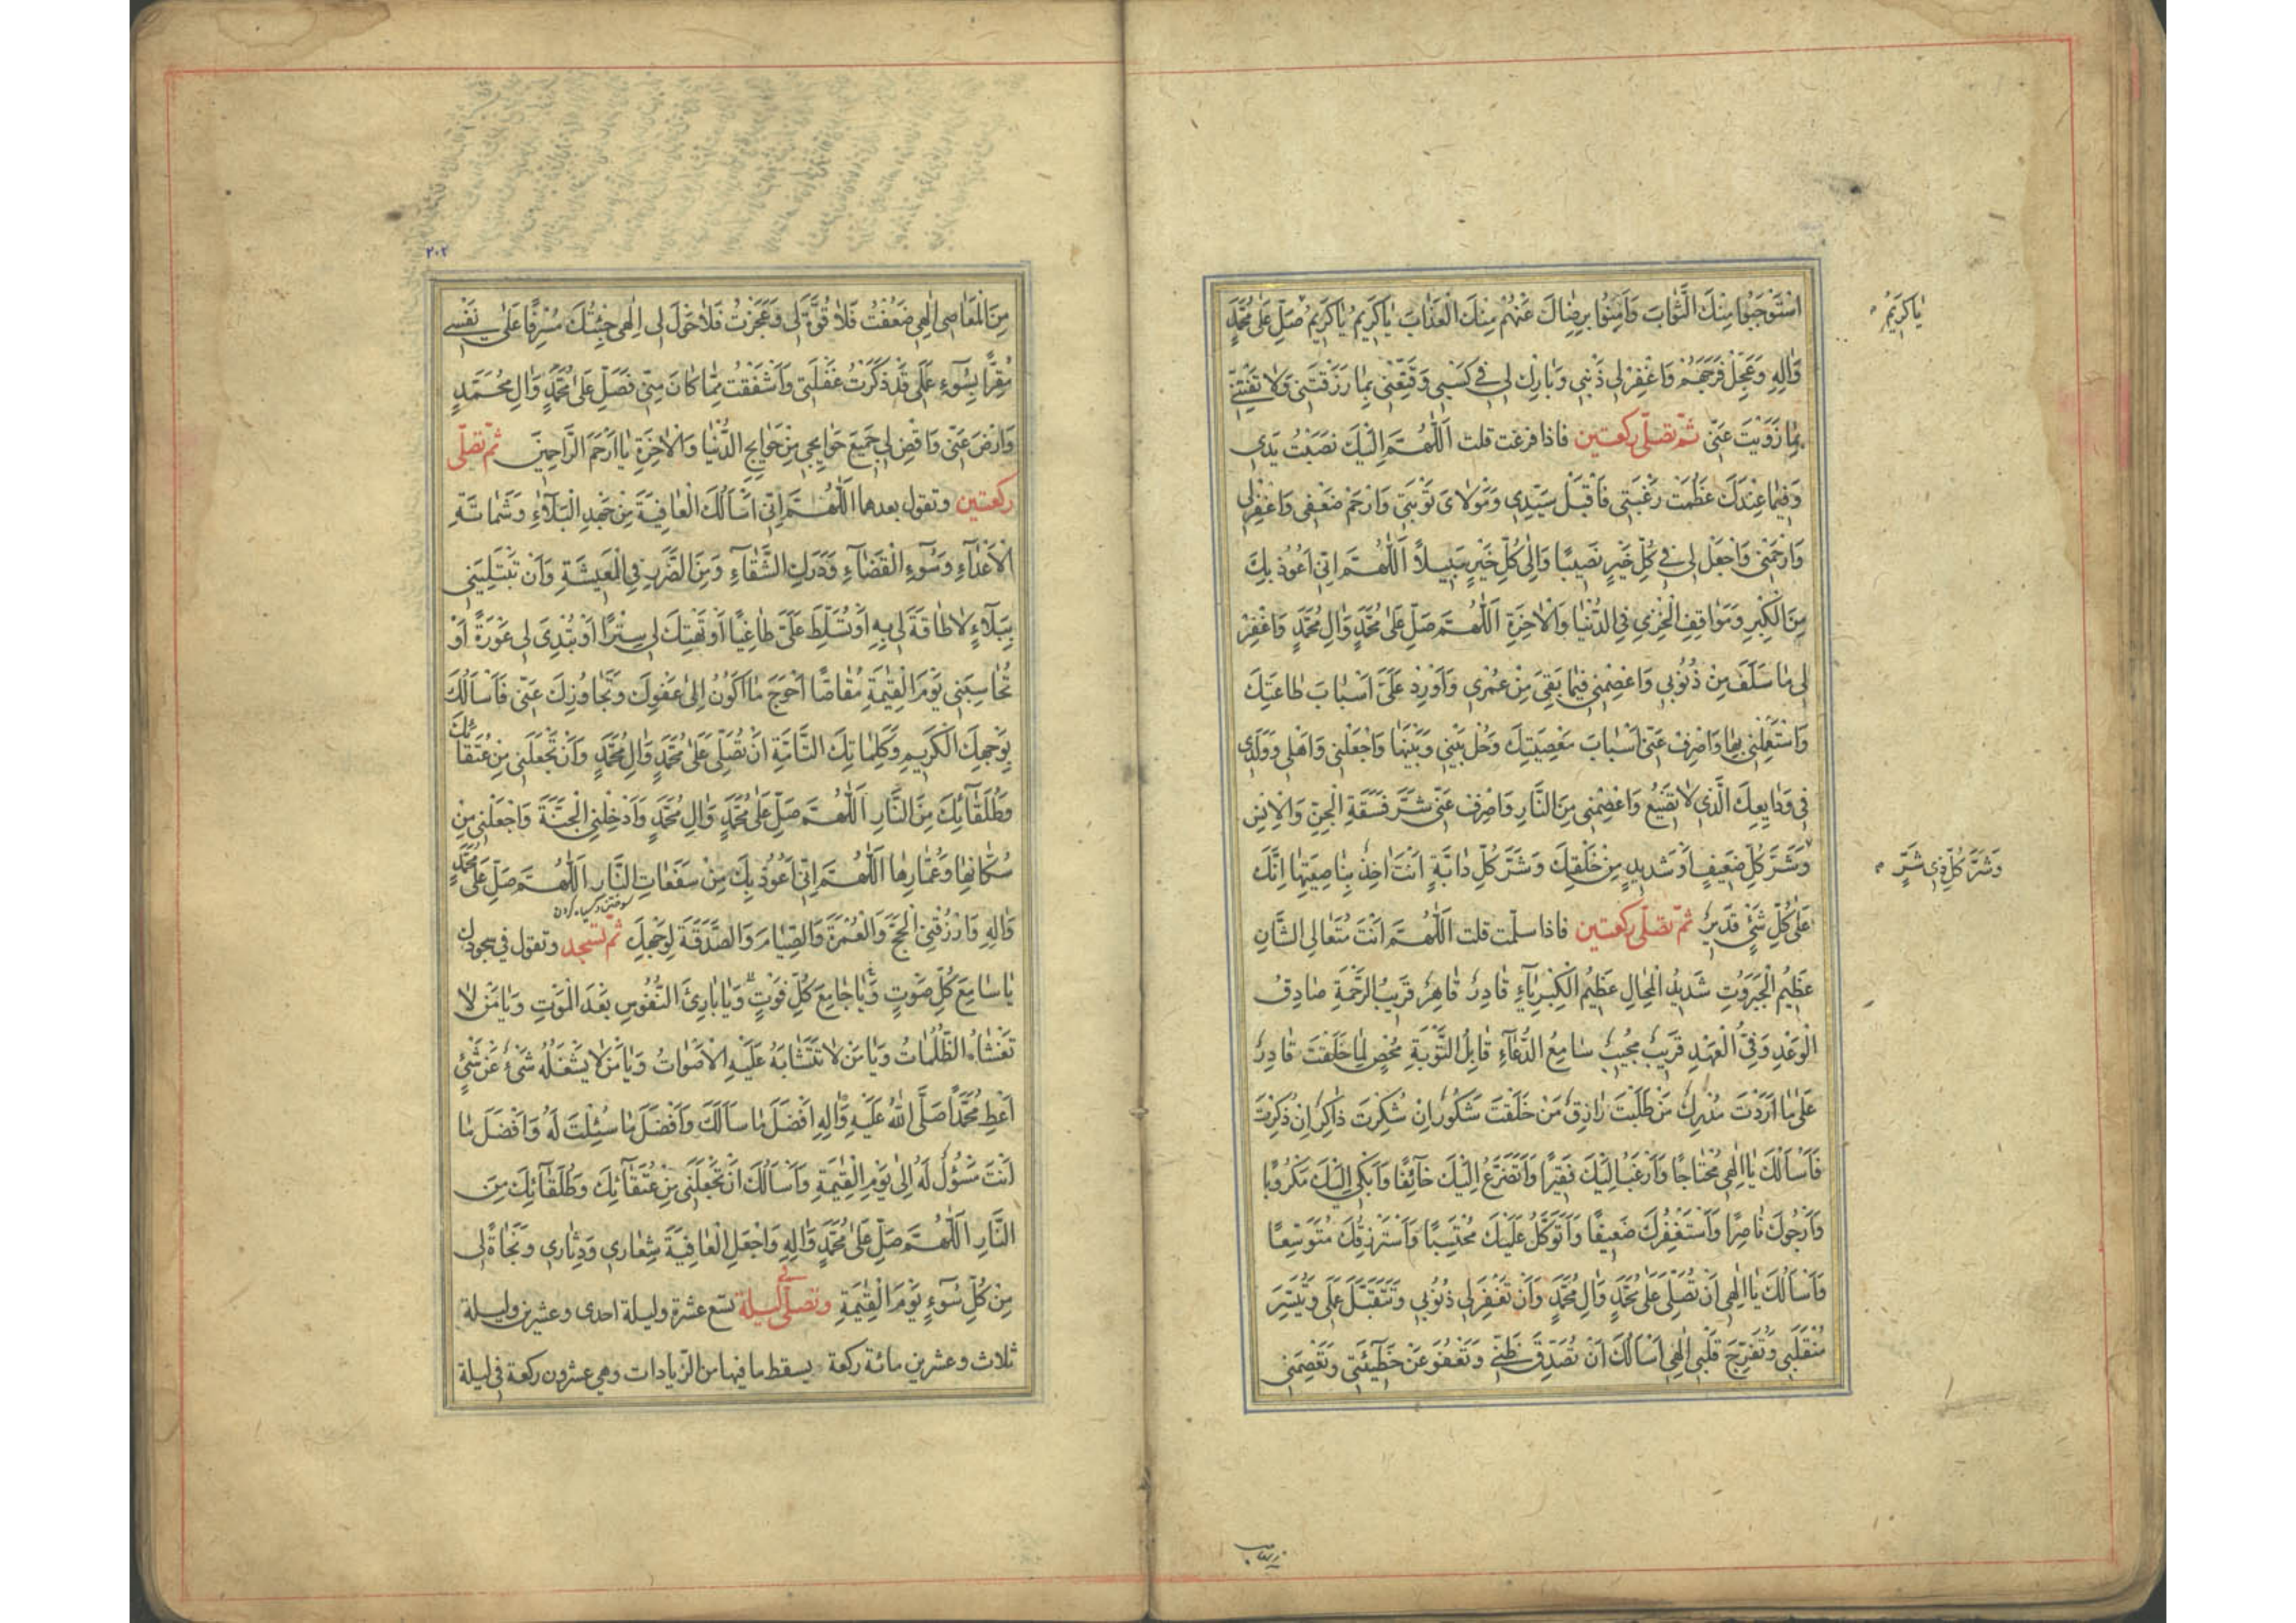 اسْتَوْجَبُوا مِنْكَ الثَّوابَ وَاَمِنُوا بِرِضاكَ عَنْهُمْ مِنْكَ الْعَذابَ ياكَريمُ ياكَريمُ صَلِّ عَلى مُحَمَّدٍ
ياكَريمُ
وَالِهِ وَعَجِّلْ فَرَجَهُمْ وَاغْفِرْلي ذَنْبي وَبارِكْ لي في كَسْبي وَقَنِّعْني بِما رَزَقْتَني وَلا تَفْتِنّي
بِما زَوَيْتَ عَنّي ثمّ تصلّي ركعتين فاذا فرغت قلت اَللّهُمَّ اِلَيْكَ نَصَبْتُ يَدي
وَفيما عِنْدَكَ عَظُمَتْ رَغْبَتي فَاقْبَلْ سَيِّدي وَمَوْلايَ تَوْبَتي وَارْحَمْ ضَعْفي وَاغْفِرْلي
وَارْحَمْني وَاجْعَلْ لي في كُلِّ خَيْرٍ نَصيبًا وَاِلى كُلِّ خَيْرٍ سَبيلاً اَللّهُمَّ اِنّي اَعُوذُ بِكَ
مِنَ الْكِبْرِ وَمَواقِفِ الْخِزْيِ فِي الدُّنْيا وَالْاخِرَةِ اَللّهُمَّ صَلِّ عَلى مُحَمَّدٍ وَالِ مُحَمَّدٍ وَاغْفِرْ
لي ما سَلَفَ مِنْ ذُنُوبي وَاعْصِمْني فيما بَقِيَ مِنْ عُمْري وَاَوْرِدْ عَلَيَّ اَسْبابَ طاعَتِكَ
وَاسْتَعْمِلْني بِها وَاصْرِفْ عَنّي اَسْبابَ مَعْصِيَتِكَ وَحُلْ بَيْني وَبَيْنَها وَاجْعَلْني وَاَهْلي وَوَلَدي
في وَدايِعِكَ الَّذي لا تَضيعُ وَاعْصِمْني مِنَ النّارِ وَاصْرِفْ عَنّي شَرَّ فَسَقَةِ الْجِنِّ وَالْاِنْسِ
وَشَرَّ كُلِّ ضَعيفٍ اَوْ شَديدٍ مِنْ خَلْقِكَ وَشَرَّ كُلِّ دابَّةٍ اَنْتَ اخِذٌ بِناصِيَتِها اِنَّكَ
وَشَرَّ كُلِّ ذي شَرٍّ
عَلى كُلِّ شَيْءٍ قَديرٌ ثمّ تصلّي ركعتين فاذا سلّمت قلت اَللّهُمَّ اَنْتَ مُتَعالِي الشَّانِ
عَظيمُ الْجَبَرُوتِ شَديدُ الْمِحالِ عَظيمُ الْكِبْرِياءِ قادِرٌ قاهِرٌ قَريبُ الرَّحْمَةِ صادِقُ
الْوَعْدِ وَفِيُّ الْعَهْدِ قَريبٌ مُجيبٌ سامِعُ الدُّعاءِ قابِلُ التَّوْبَةِ مُحْصٍ لِما خَلَقْتَ قادِرٌ
عَلى ما اَرَدْتَ مُدْرِكُ مَنْ طَلَبْتَ رازِقُ مَنْ خَلَقْتَ شَكُورٌ اِنْ شُكِرْتَ ذاكِرٌ اِنْ ذُكِرْتَ
فَاَسْاَلُكَ يااِلهي مُحْتاجًا وَاَرْغَبُ اِلَيْكَ فَقيرًا وَاَتَضَرَّعُ اِلَيْكَ خائِفًا وَاَبْكي اِلَيْكَ مَكْرُوبًا
وَاَرْجُوكَ ناصِرًا وَاَسْتَغْفِرُكَ ضَعيفًا وَاَتَوَكَّلُ عَلَيْكَ مُحْتَسِبًا وَاَسْتَرْزِقُكَ مُتَوَسِّعًا
وَاَسْاَلُكَ يااِلهي اَنْ تُصَلِّيَ عَلى مُحَمَّدٍ وَالِ مُحَمَّدٍ وَاَنْ تَغْفِرَلي ذُنُوبي وَتَتَقَبَّلَ عَمَلي وَتُيَسِّرَ
مُنْقَلَبي وَتُفَرِّجَ قَلْبي اِلهي اَسْاَلُكَ اَنْ تُصَدِّقَ ظَنّي وَتَعْفُوَ عَنْ خَطيئَتي وَتَعْصِمَني
٢٠٢
مِنَ الْمَعاصي اِلهي ضَعُفْتُ فَلا قُوَّةَ لي وَعَجَزْتُ فَلا حَوْلَ لي اِلهي جِئْتُكَ مُسْرِفًا عَلى نَفْسي
مُقِرًّا بِسُوءِ عَمَلي قَدْ ذَكَرْتُ غَفْلَتي وَاَشْفَقْتُ مِمّا كانَ مِنّي فَصَلِّ عَلى مُحَمَّدٍ وَالِ مُحَمَّدٍ
وَارْضَ عَنّي وَاقْضِ لي جَميعَ حَوايِجي مِنْ حَوايِجِ الدُّنْيا وَالْاخِرَةِ يااَرْحَمَ الرّاحِمينَ ثمّ تصلّي
ركعتين وتقول بعدهما اَللّهُمَّ اِنّي اَسْاَلُكَ الْعافِيَةَ مِنْ جَهْدِ الْبَلاءِ وَشَماتَةِ
الْاَعْداءِ وَسُوءِ الْقَضاءِ وَدَرَكِ الشَّقاءِ وَمِنَ الضَّرَرِ فِي الْمَعيشَةِ وَاَنْ تَبْتَلِيَني
بِبَلاءٍ لا طاقَةَ لي بِهِ اَوْ تُسَلِّطَ عَلَيَّ طاغِيًا اَوْ تَهْتِكَ لي سِتْرًا اَوْ تُبْدِيَ لي عَوْرَةً اَوْ
تُحاسِبَني يَوْمَ الْقِيمَةِ مُقاصًّا اَحْوَجَ ما اَكُونُ اِلى عَفْوِكَ وَتَجاوُزِكَ عَنّي فَاَسْاَلُكَ
بِوَجْهِكَ الْكَريمِ وَكَلِماتِكَ التّامَّةِ اَنْ تُصَلِّيَ عَلى مُحَمَّدٍ وَالِ مُحَمَّدٍ وَاَنْ تَجْعَلَني مِنْ عُتَقائِكَ
وَطُلَقائِكَ مِنَ النّارِ اَللّهُمَّ صَلِّ عَلى مُحَمَّدٍ وَالِ مُحَمَّدٍ وَاَدْخِلْنِي الْجَنَّةَ وَاجْعَلْني مِنْ
سُكّانِها وَعُمّارِها اَللّهُمَّ اِنّي اَعُوذُ بِكَ مِنْ سَفَعاتِ النّارِ اَللّهُمَّ صَلِّ عَلى مُحَمَّدٍ
سوختن و سياه كردن
وَالِهِ وَارْزُقْنِي الْحَجَّ وَالْعُمْرَةَ وَالصِّيامَ وَالصَّدَقَةَ لِوَجْهِكَ ثمّ تسجد وتقول في سجودك
ياسامِعَ كُلِّ صَوْتٍ وَياجامِعَ كُلِّ فَوْتٍ وَيابارِئَ النُّفُوسِ بَعْدَ الْمَوْتِ وَيامَنْ لا
تَغْشاهُ الظُّلُماتُ وَيامَنْ لا تَتَشابَهُ عَلَيْهِ الْاَصْواتُ وَيامَنْ لا يَشْغَلُهُ شَيْءٌ عَنْ شَيْءٍ
اَعْطِ مُحَمَّدًا صَلَّى اللهُ عَلَيْهِ وَالِهِ اَفْضَلَ ما سَاَلَكَ وَاَفْضَلَ ما سُئِلْتَ لَهُ وَاَفْضَلَ ما
اَنْتَ مَسْؤُلٌ لَهُ اِلى يَوْمِ الْقِيمَةِ وَاَسْاَلُكَ اَنْ تَجْعَلَني مِنْ عُتَقائِكَ وَطُلَقائِكَ مِنَ
النّارِ اَللّهُمَّ صَلِّ عَلى مُحَمَّدٍ وَالِهِ وَاجْعَلِ الْعافِيَةَ شِعاري وَدِثاري وَنَجاةً لي
مِنْ كُلِّ سُوءٍ يَوْمَ الْقِيمَةِ وتصلّي في ليلة تسع عشرة وليلة احدى وعشرين وليلة
ثلاث وعشرين مائة ركعة يسقط ما فيها من الزّيادات وهي عشرون ركعة في ليلة